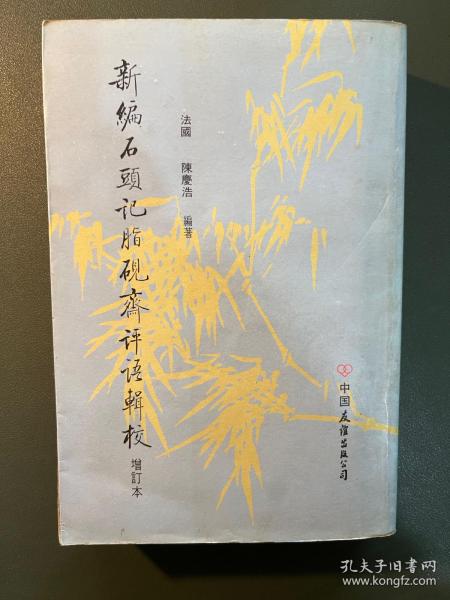 新編石頭记脂硯齋评语輯校
增訂本
法國 陳慶浩 編著
中国友谊出版公司
孔夫子旧书网
www.kongfz.com